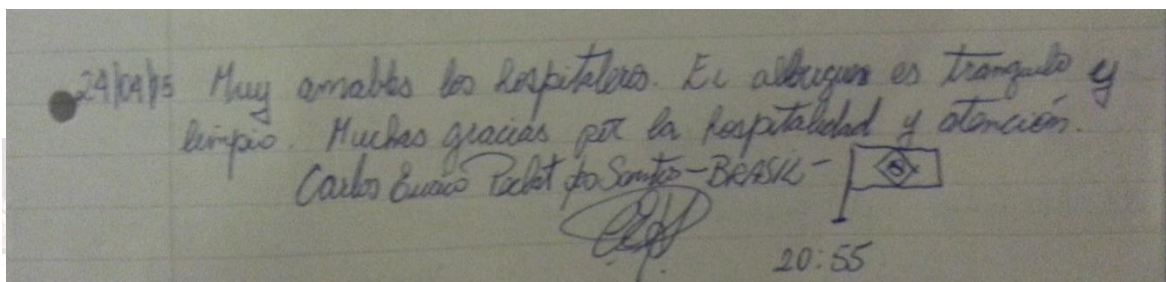 24/04/15 Muy amables los hospitaleros. El albergue es tranquilo y
limpio. Muchas gracias por la hospitalidad y atención.
Carlos dos Santos - BRASIL -
20:55